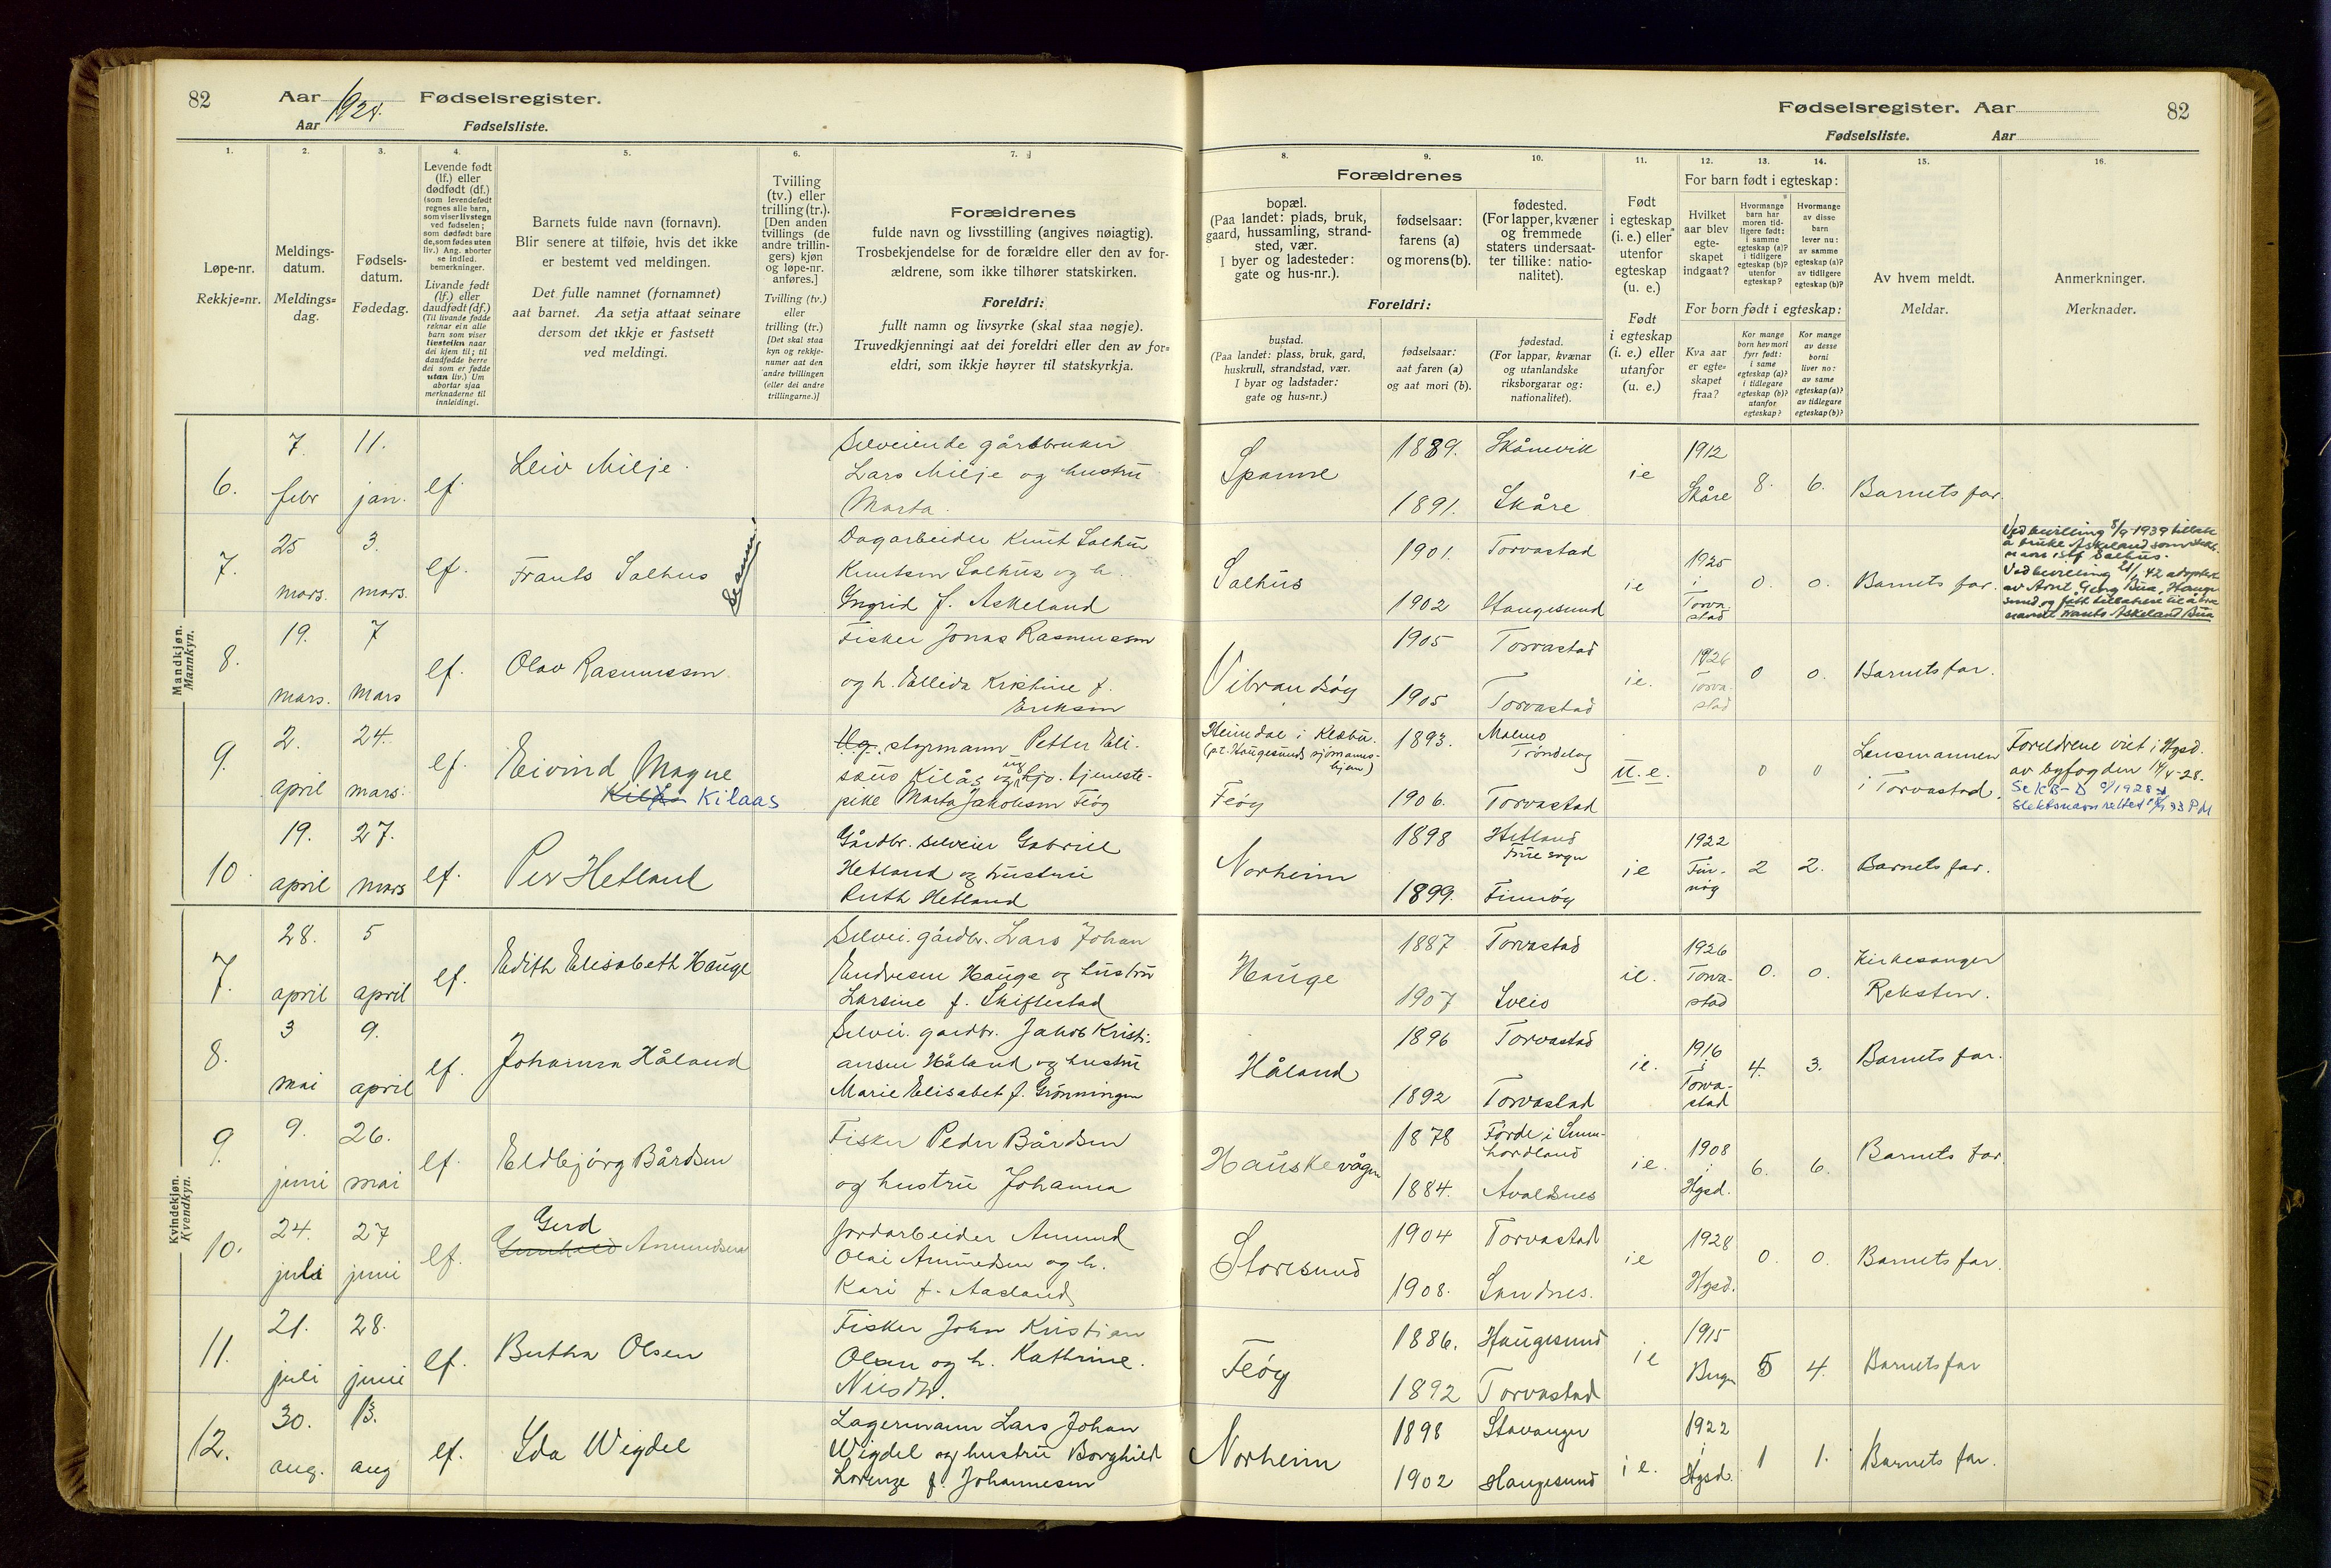 82
Aar 1928. Fødselsregister.
Aar Fødselsliste.
1.
2.
3.
4.
5.
6.
7.
Løpe-nr.
Rekkje=nr.
Meldings-
datum.
Meldings=
dag.
Fødsels-
datum.
Fødedag.
Levende født
(lf.) eller
dødfødt (df.)
(som levendefødt
regnes alle barn,
som viser livstegn
ved fødselen;
som dødfødt bare
de, som fødes uten
liv.) Ang. aborter
se indled.
bemerkninger.
Livande født
(lf.) eller
daudfødt (df.)
(Til livande fødde
reknar ein alle
barn som viser
livsteikn naar
dei kjem til; til
daudfødde berre
dei som er fødde
utan liv.) Um
abortar sjaa
merknaderne til
innleidingi.
Barnets fulde navn (fornavn).
Blir senere at tilføie, hvis det ikke
er bestemt ved meldingen.
Det fulle namnet (fornamnet)
aat barnet. Aa setja attaat seinare
dersom det ikkje er fastsett
ved meldingi.
Tvilling
(tv.) eller
trilling (tr.).
[Den anden
tvillings (de
andre trillin-
gers) kjøn
og løpe-nr.
anføres.]
Tvilling (tv.)
eller
trilling (tr.)
[Det skal staa
kyn og rekkje-
numer aat den
andre tvillingen
(eller dei andre
trillingarne.)]
Forældrenes
fulde navn og livsstilling (angives nøiagtig).
Trosbekjendelse for de forældre eller den av for-
ældrene, som ikke tilhører statskirken.
Foreldri:
fullt namn og livsyrke (skal staa nøgje).
Truvedkjenningi aat dei foreldri eller den av for=
eldri, som ikkje høyrer til statskyrkja.
Mandkjøn.
Mannkyn.
6.
7. febr
11. jan.
lf.
Leiv Milje.
Selveiende gårdbruker
Lars Milje og hustru
Marta.
7.
25 mars.
3. mars.
lf.
Frants Salhus
Dagarbeider Knut Salhus
Knutsen Salhus og h.
Ingrid f. Askeland
8.
19. mars.
7 mars
lf.
Olav Rasmussen
Fisker Jonas Rasmussen
og h. Ellida Kristine f.
Eriksen
9.
2. april
24. mars.
lf.
Eivind Magne
Kilaas
Ug. styrmann Petter Eli-
saus Kilås og ug hjv. tjeneste-
pike Marta Jakobsen Feöy
10.
19. april
27. mars
lf.
Per Hetland
Gårdbr. selveier Gabriel
Hetland og hustru
Ruth Hetland
Kvindekjøn.
Kvendkyn.
7.
28. april
5 april
lf.
Edith Elisabeth Hauge
Selvei. gårdbr. Lars Johan
Endresen Hauge og hustru
Larsine f. Skiftestad
8.
3 mai
9. april
lf.
Johanna Håland
Selvei. gardbr. Jakob Kristi-
ansen Håland og hustru
Marie Elisabet f. Grönningen
9.
9. juni
26. mai
lf.
Eldbjörg Bårdsen
Fisker Peder Bårdsen
og hustru Johanna
10.
24. juli
27 juni
lf.
Gerd
Gunhild Amundsen
Jordarbeider Amund
Olai Amundsen og h.
Kari f. Aasland
11.
21. juli
28. juni
lf.
Bertha Olsen
Fisker John Kristian
Olsen og h. Kathrine.
12.
30. aug.
13. aug
lf.
Ida Wigdel
Lagermann Lars Johan
Wigdel og hustru Borghild
Lorenze f. Johannesen
Fødselsregister. Aar
82
Fødselsliste. Aar
8.
9.
10.
11.
12.
13.
14.
15.
16.
Forældrenes
bopæl.
(Paa landet: plads, bruk,
gaard, hussamling, strand-
sted, vær.
I byer og ladesteder:
gate og hus-nr.).
fødselsaar:
farens (a)
og morens (b).
fødested.
(For lapper, kvæner
og fremmede
staters undersaat-
ter tillike: natio-
nalitet).
Foreldri:
bustad.
(Paa landet: plass, bruk, gard,
huskrull, strandstad, vær.
I byar og ladstader:
gate og hus=nr.)
fødselsaar:
aat faren (a)
og aat mori (b).
fødestad.
(For lappar, kvænar
og utanlandske
riksborgarar og:
nationalitet).
Født
i egteskap
(i. e.) eller
utenfor
egteskap
(u. e.)
Født
i egteskap
(i. e.) eller
utanfor
(u. e.)
For barn født i egteskap:
Hvilket
aar blev
egte-
skapet
indgaat?
Hvormange
barn har
moren tid-
ligere født:
i samme
egteskap (a)?
i tidligere
egteskap (b)?
utenfor
egteskap?
Hvormange
av disse
barn
lever nu:
av samme
egteskap (a)?
av tidligere
egteskap (b)?
For born født i egteskap:
Kva aar
er egte=
skapet
fraa?
Kor mange
born hev mori
fyrr født:
i same
egteskap (a)?
i tidlegare
egteskap (b)?
utanfor
egteskap?
Kor mange
av desse
borni
liver no:
av same
egteskap (a)?
av tidlegare
egteskap (b)?
Av hvem meldt.
Meldar.
Anmerkninger.
Merknader.
Spanne
1889. Skånevik
1891. Skåre
ie
1912 Skåre
8.
6.
Barnets far.
Salhus
1901. Torvastad
1902 Haugesund
ie
1925 i Torva-
stad
0.
0.
Barnets far.
Ved bevilling 5/9 1939 tillatt
å bruke Askeland som slekts-
navn istf. Salhus.
Ved bevilling 21/1 42 adoptert
av Arnt Georg Bua, Hauge-
sund og fått tillatelse til å bære
navnet Frants Askeland Bua
Vibrandsöy
1905 Torvastad
1905 Torvastad
ie.
1926 Torva-
stad
0
0.
Barnets far.
Heimdal i Klæbu.
(pt. Haugesunds sjömanns-
hjem)
Feöy
1893. Malmo
Tröndelag
1906. Torvastad
u.e.
0
0
Lensmannen
i Torvastad.
Foreldrene viet i Hgsd.
av byfogden 14/4-28.
Norheim
1898 Hetland
1899. Finnöy
ie
1922
Fin-
nöy
2
2.
Barnets far.
Hauge
1887 Torvastad
1907 Sveio
ie.
1926
Torva-
stad
0.
0.
Kirkesanger
Reksten.
Håland
1896 Torvastad
1892 Torvastad
ie.
1916
i
Torva-
stad
4.
3.
Barnets far.
Hauskevågen
1878 Förde i Sunn-
hordland
1884. Avaldsnes
ie.
1908
i
Hgsd.
6.
6.
Barnets far
Storesund
1904 Torvastad
1908. Sandnes.
ie
1928
Hgsd.
0.
0.
Barnets far.
Feöy
1886. Haugesund
1892 Torvastad
ie
1915
Bergen
5
4.
Barnets far
Norheim
1898 Stavanger
1902 Haugesund
ie.
1922
i
Hgsd.
1
1.
Barnets far.